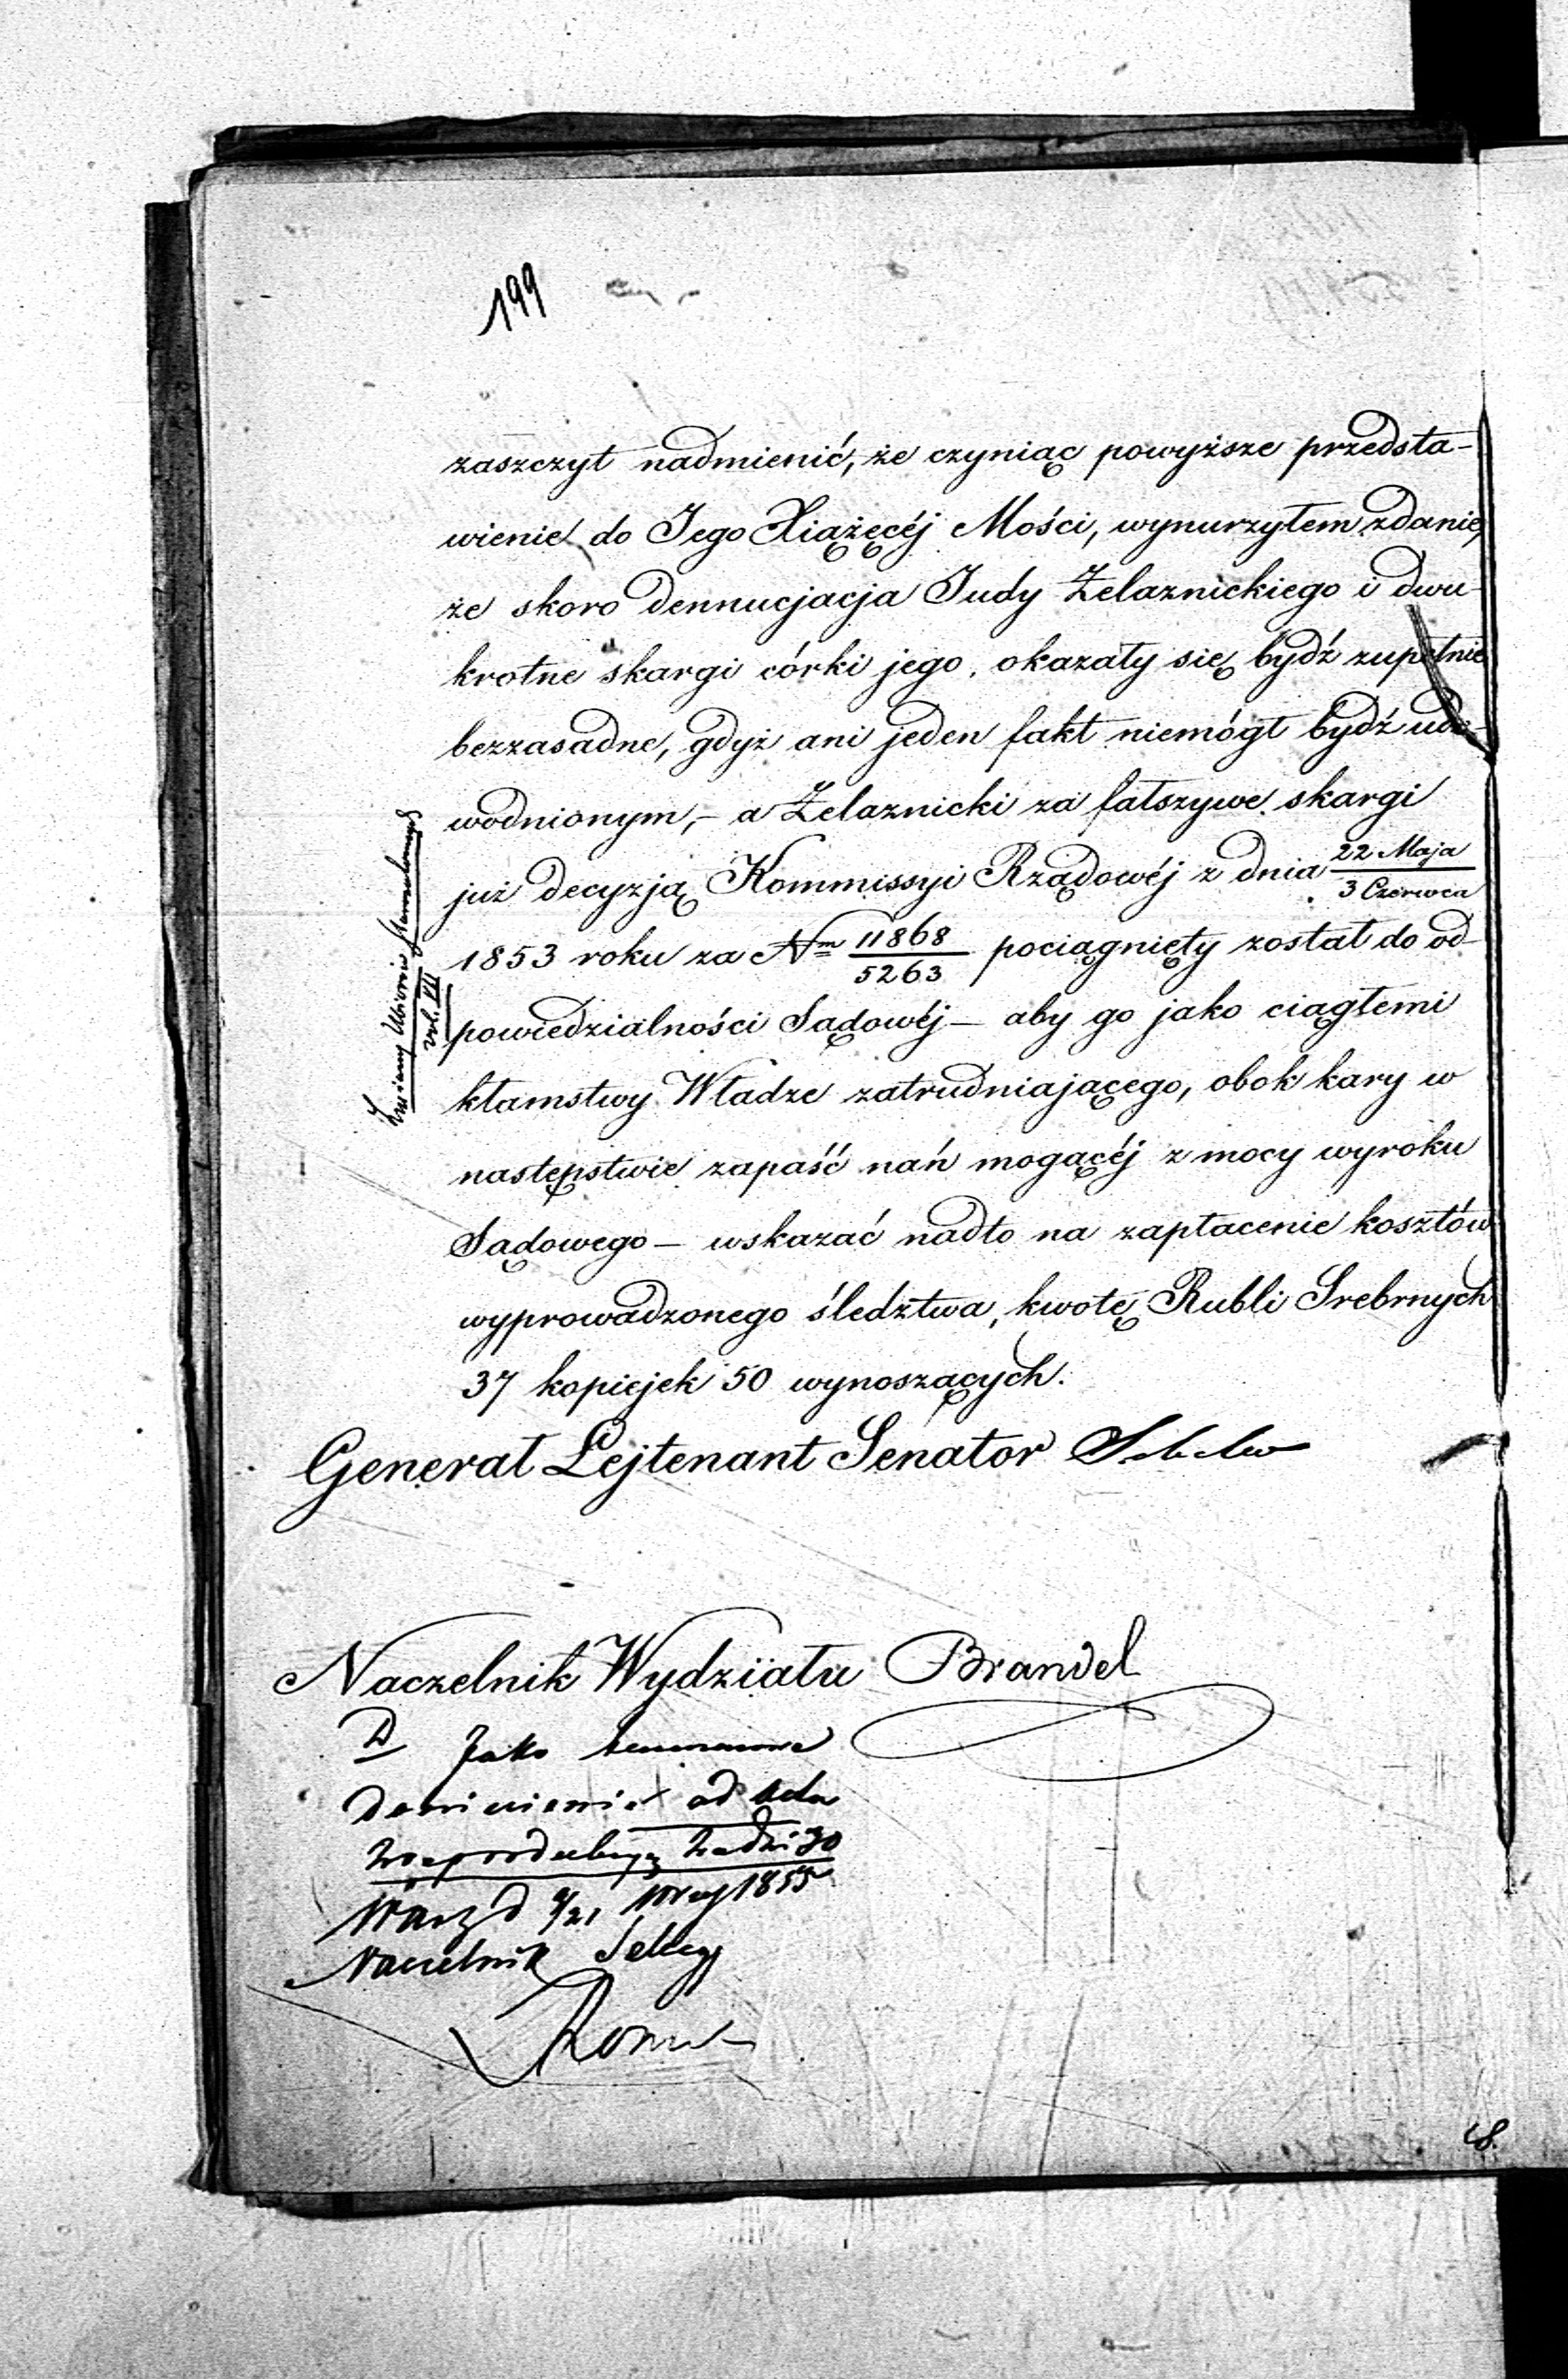 199
zaszczyt nadmienić, że czyniąc powyższe przedsta-
wienie do Jego Xiążęcéj Mości, wynurzyłem zdanie,
że skoro dennucjacja Judy Żelaznickiego i dwu-
krotne skargi córki jego, okazały się bydź zupełnie
bezzasadne, gdyż ani jeden fakt niemógł bydź udo-
wodnionym, – a Żelaznicki za fałszywe skargi
już decyzją Kommissyi Rządowéj z dnia 22 Maja / 3 Czerwca
1853 roku za Nm 11868 / 5263 pociągnięty został do od-
powiedzialności Sądowéj – aby go jako ciągłemi
kłamstwy Władze zatrudniającego, obok kary w
następstwie zapaść nań mogącéj z mocy wyroku
Sądowego – wskazać nadto na zapłacenie kosztów
wyprowadzonego śledztwa, kwotę Rubli Srebrnych
37 kopiejek 50 wynoszących.
Generał Lejtenant Senator
Naczelnik Wydziału Brandel
Jako
od
1855
Naczelnik Sekcyi
zmiany Ubiorów
vol. VII